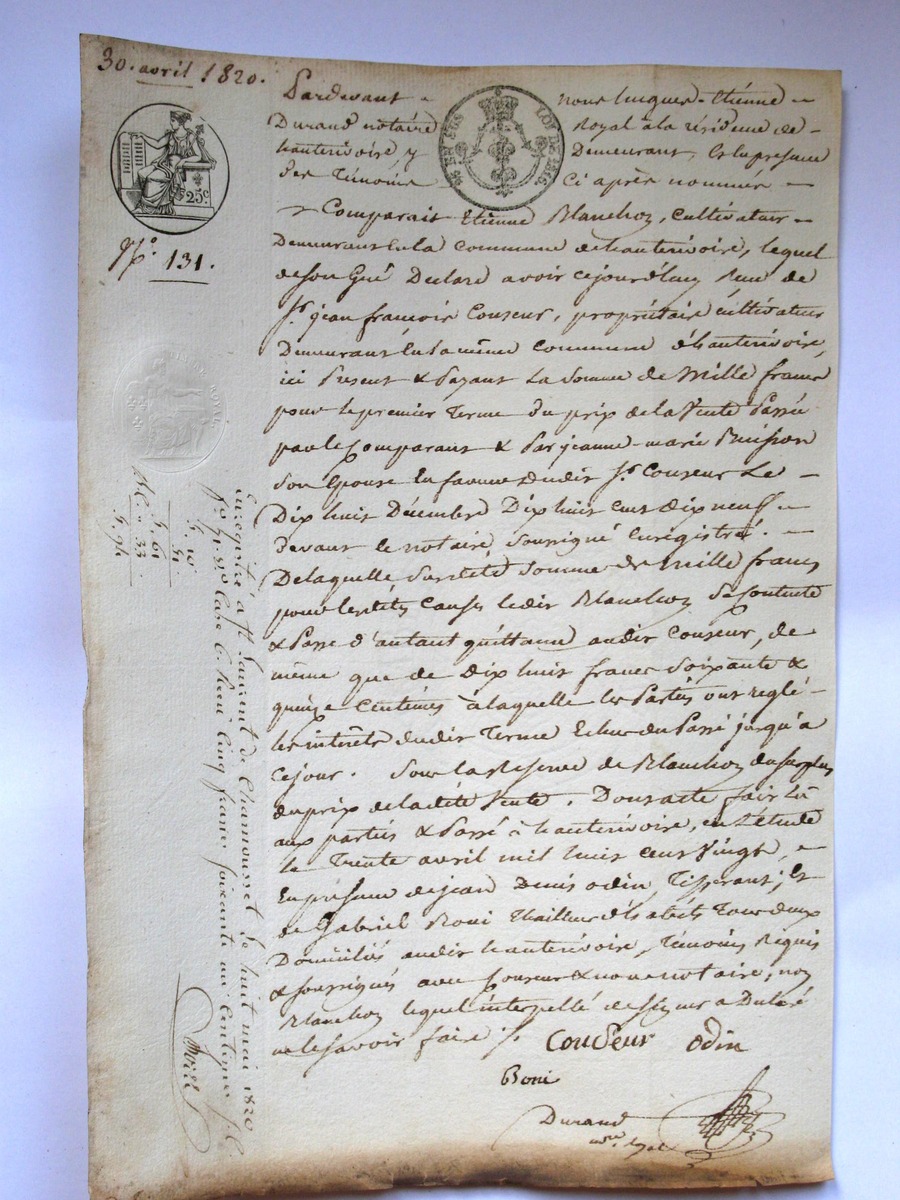 30. avril 1820.
Pardevant nous Jucques-Etienne
Durand notaire Royal à la résidence de
hauterivoire, y Demeurant, Et en présence
des Témoins ci après nommés
Comparait Etienne Blanchon, cultivateur
Demeurant En la commune de hauterivoire, lequel
de son Gré Declare avoir cejourd'huy Reçu de
Sr. jean francois Couseur, propriétaire cultivateur
Demeurant En la même commune d'hauterivoire,
ici Présent & Payant La Somme de Mille francs
pour le premier Terme du prix de la Vente Passée
par le Comparant & Par jeanne-marie Buisson
Son Epouse En faveur dudit Sr. Couseur Le
Dix huit Décembre Dix huit cent dix neuf
devant le notaire soussigné Enregistré.
Delaquelle Susdite Somme de Mille francs
pour lesdites Causes ledit Blanchon Se contente
& Passe d'autant quittance audit Couseur, de
même que de Dix huit francs Soixante &
quinze Centimes à laquelle les Parties ont reglé
les intérêts dudit Terme Echus du Passé jusqu'à
cejour. Sous la Réserve de Blanchon du surplus
du prix de ladite Vente. Dont acte fait Lû
aux parties & Passé à hauterivoire, en L'étude
Le Trente avril mil huit cent Vingt,
En présence de jean Denis odin, Tisserant; Et
de Gabriel Boni Thailleur d'habits Tous deux
Domiciliés audit hauterivoire, Témoins Requis
& soussignés avec Couseur & nous notaire; non
Blanchon lequel interpellé de Signer a Déclaré
ne le savoir faire
Couseur odin
Boni
Durand
nre. Royal
25c
N.o 131.
Enregistré à St. Laurent de Chamousset le huit mai 1820
fo. 71. Vo. Case 6. Reçu cinq francs soixante un Centimes